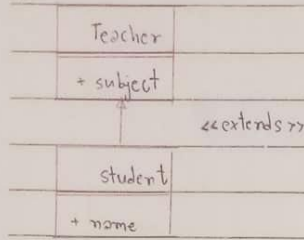 Teacher
+ subject
<<extends>>
student
+ name